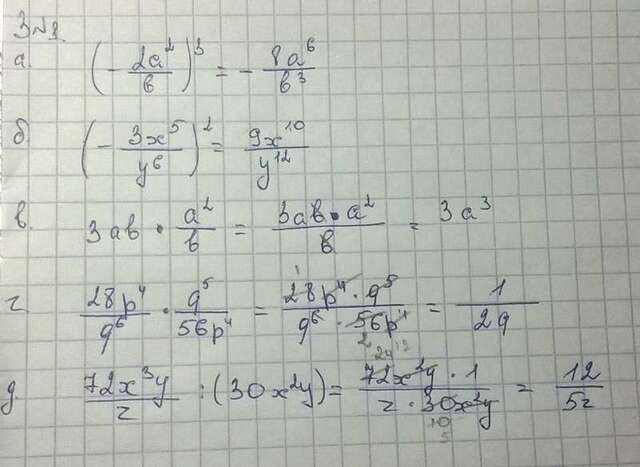 З№1.
а. (-2a²/b)³ = -8a⁶/b³
б. (-3x⁵/y⁶)² = 9x¹⁰/y¹²
в. 3ab · a²/b = 3ab · a²/b = 3a³
г. 28p⁴/q⁶ · q⁵/56p⁴ = 28p⁴ · q⁵/q⁶ · 56p⁴ = 1/2q
д. 72x³y/z : (30x²y) = 72x³y · 1/z · 30x²y = 12/5z